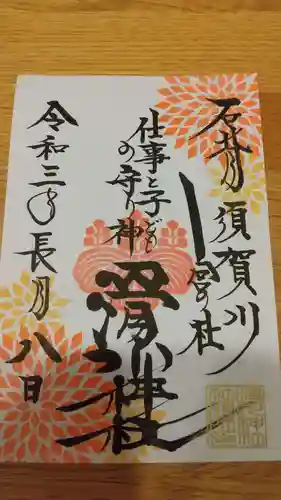 石背 須賀川
一宮の社
仕事と子どもの守り神
神社
令和三年長月八日